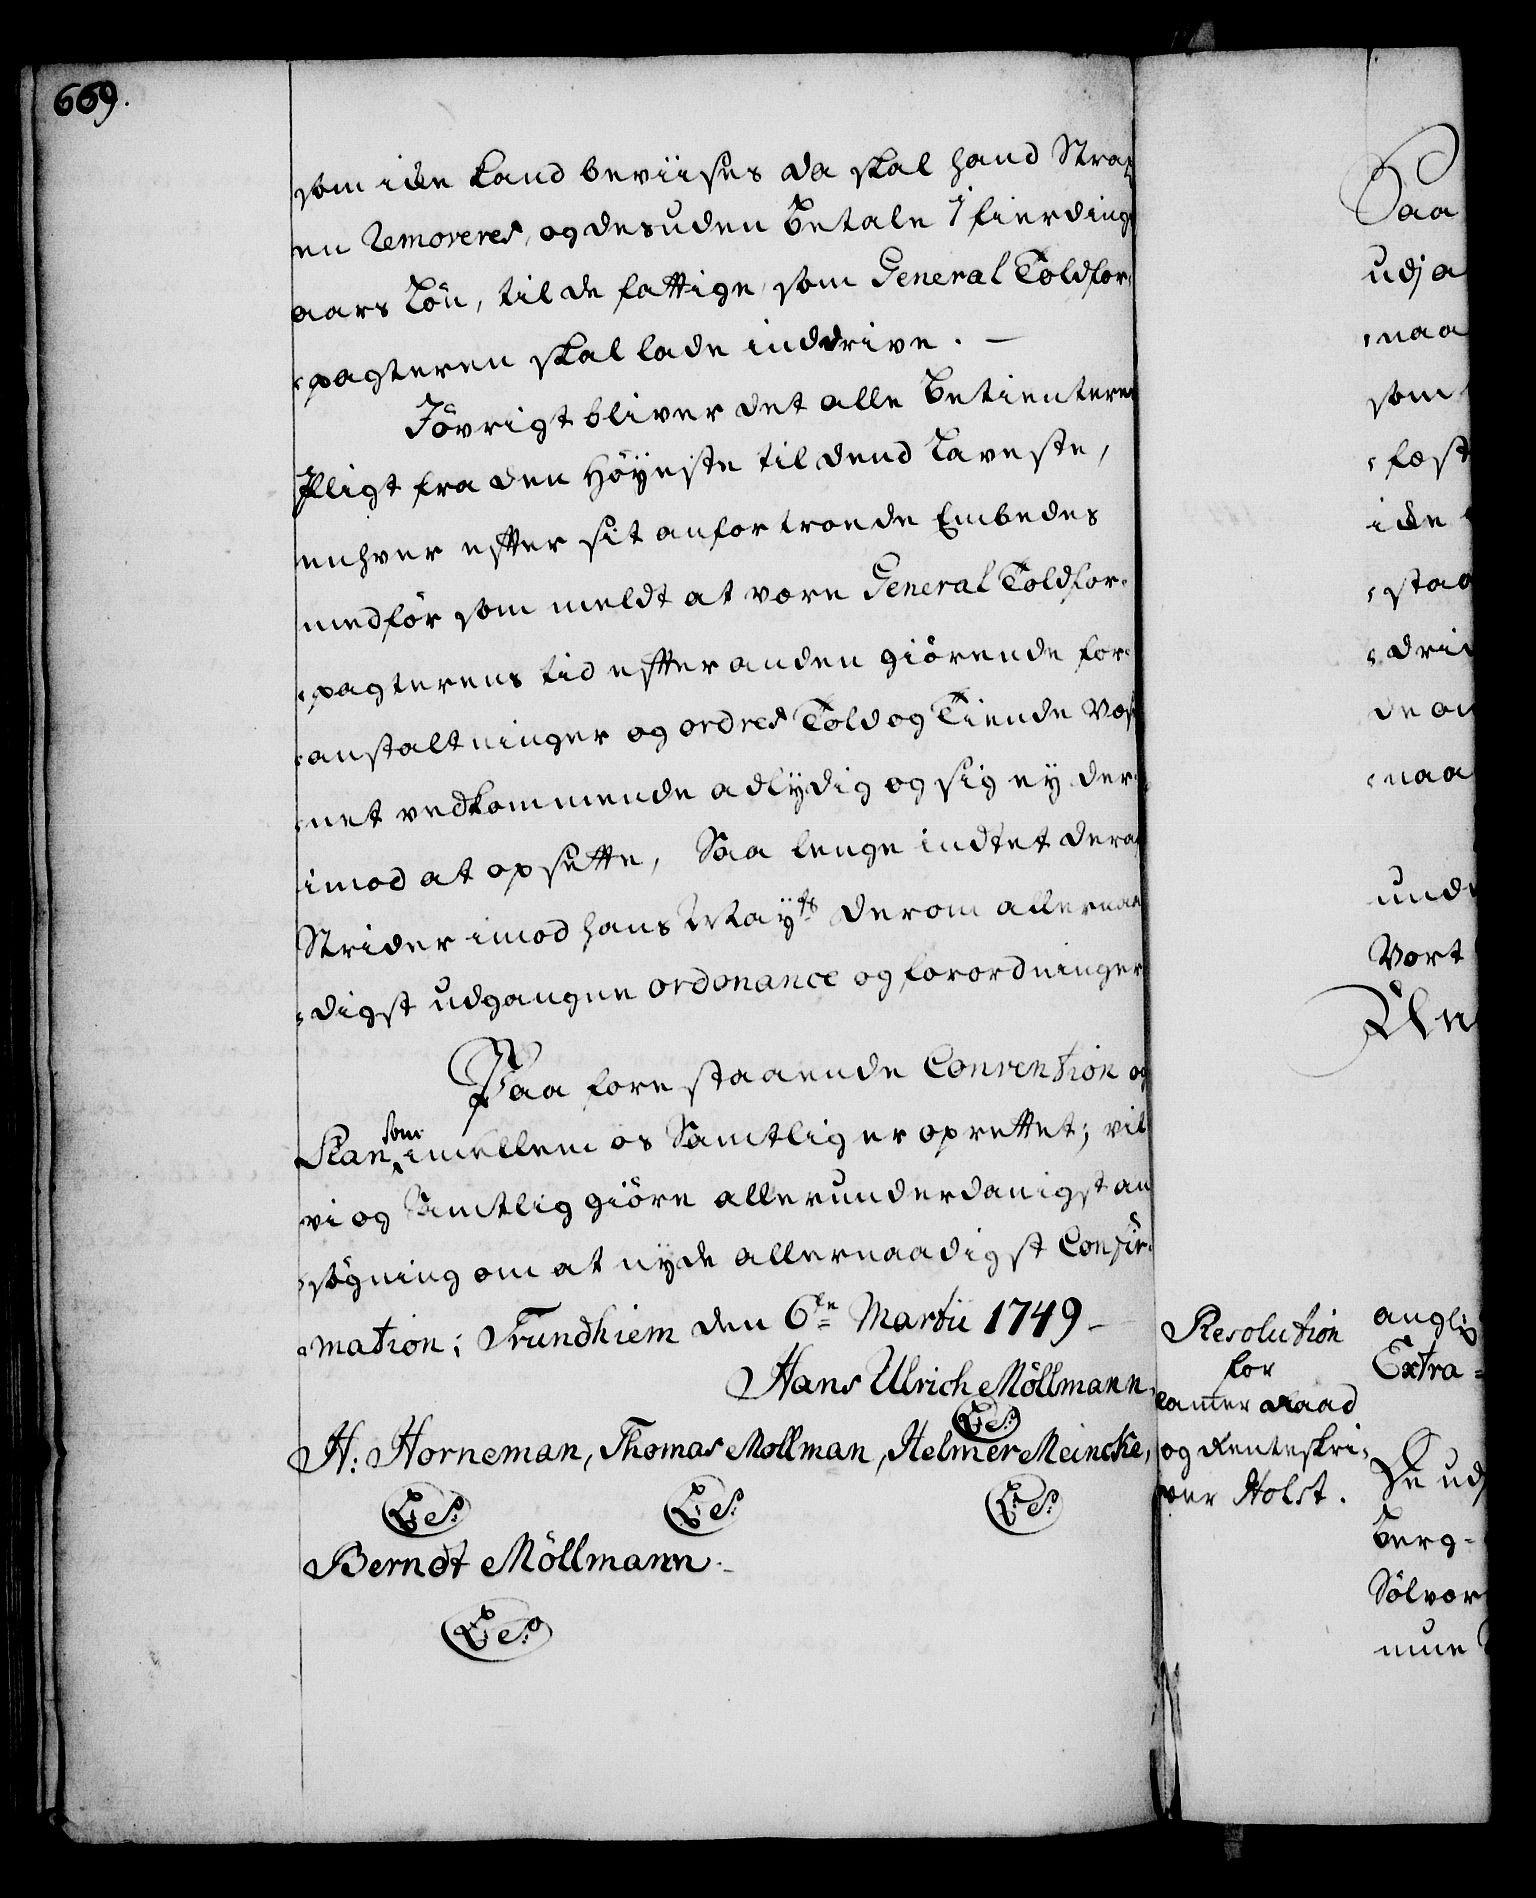 669.
som icke kand beviises da skal hand Strax
en Removeres, og desuden betale 1 fierding
aars Løn, til de fattige, som General Toldfor-
pagteren skal lade inddrive. —
Jøvrigt bliver det alle betienteres
Pligt fra den Høyeste til dend Laveste,
enhver efter sit anfortroede Embedes
medfør som meldt at være General Toldfor-
pagterens tid efter anden giørende for-
anstaltninger og ordres Told og Tiende Væs
net vedkommende adlydig og sig ey der-
imod at opsette, Saa lenge indtet deraf
Strider imod hans Mayts derom allernaa
digst udgangne ordonance og forordninger
Paa forestaaende Convention og
Plan som imellem os Samtlig er oprettet; vil
vi og Samtlig giøre allerunderdanigst an
søgning om at nyde allernaadigst Confir-
mation; Trundhiem den 6te Martii 1749 –
Hans Ulrich Möllmann,
L.S.
H: Horneman, Thomas Mollman, Helmer Meincke,
L.S. L.S. L.S.
Berndt Möllmann.
L.S.
Resolution
for
Camer Raad
og Renteskri-
ver Holst.
Saa
udj a
naa
som
fæst
icke
staa
dri
de
naa
unde
Vort
angl:
Extra-
De udj
berg-
Sølvær
mue